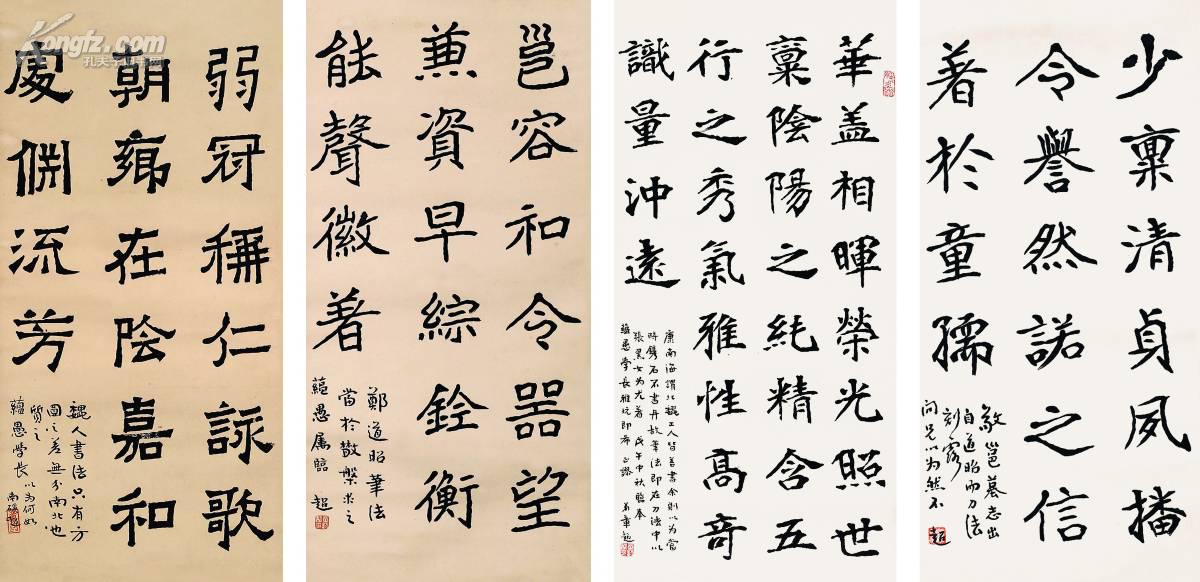 少稟清貞夙播
令譽然諾之信
著於童孺
敬邕墓志出
自道昭而刀法
刻露
問兄以為然不 超
華盖相暉榮光照世
稟陰陽之純精含五
行之秀氣雅性高奇
識量沖遠
康南海謂北魏工人皆善書余則以為當
時鐫石不書丹故筆法即在刀法中以
張黑女為尤著 戊午中秋臨奉
蘊愚學長雅玩即希正謬 超
邕容和令器望
兼資早綜銓衡
能聲徽著
鄭道昭筆法
當於散槃求之
蘊愚屬臨 超
弱冠稱仁詠歌
朝鄉在陰嘉和
處渊流芳
魏人書法只有方
圓之差無分南北也
質之
蘊愚学長以為何如
Kongfz.com
孔夫子旧书网